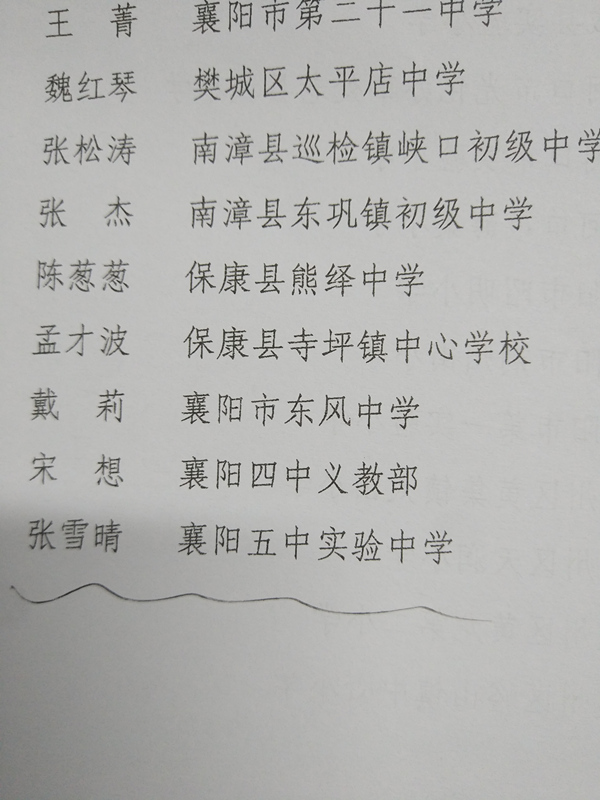 王 菁 襄阳市第二十一中学
魏红琴 樊城区太平店中学
张松涛 南漳县巡检镇峡口初级中学
张 杰 南漳县东巩镇初级中学
陈葱葱 保康县熊绎中学
孟才波 保康县寺坪镇中心学校
戴 莉 襄阳市东风中学
宋 想 襄阳四中义教部
张雪晴 襄阳五中实验中学